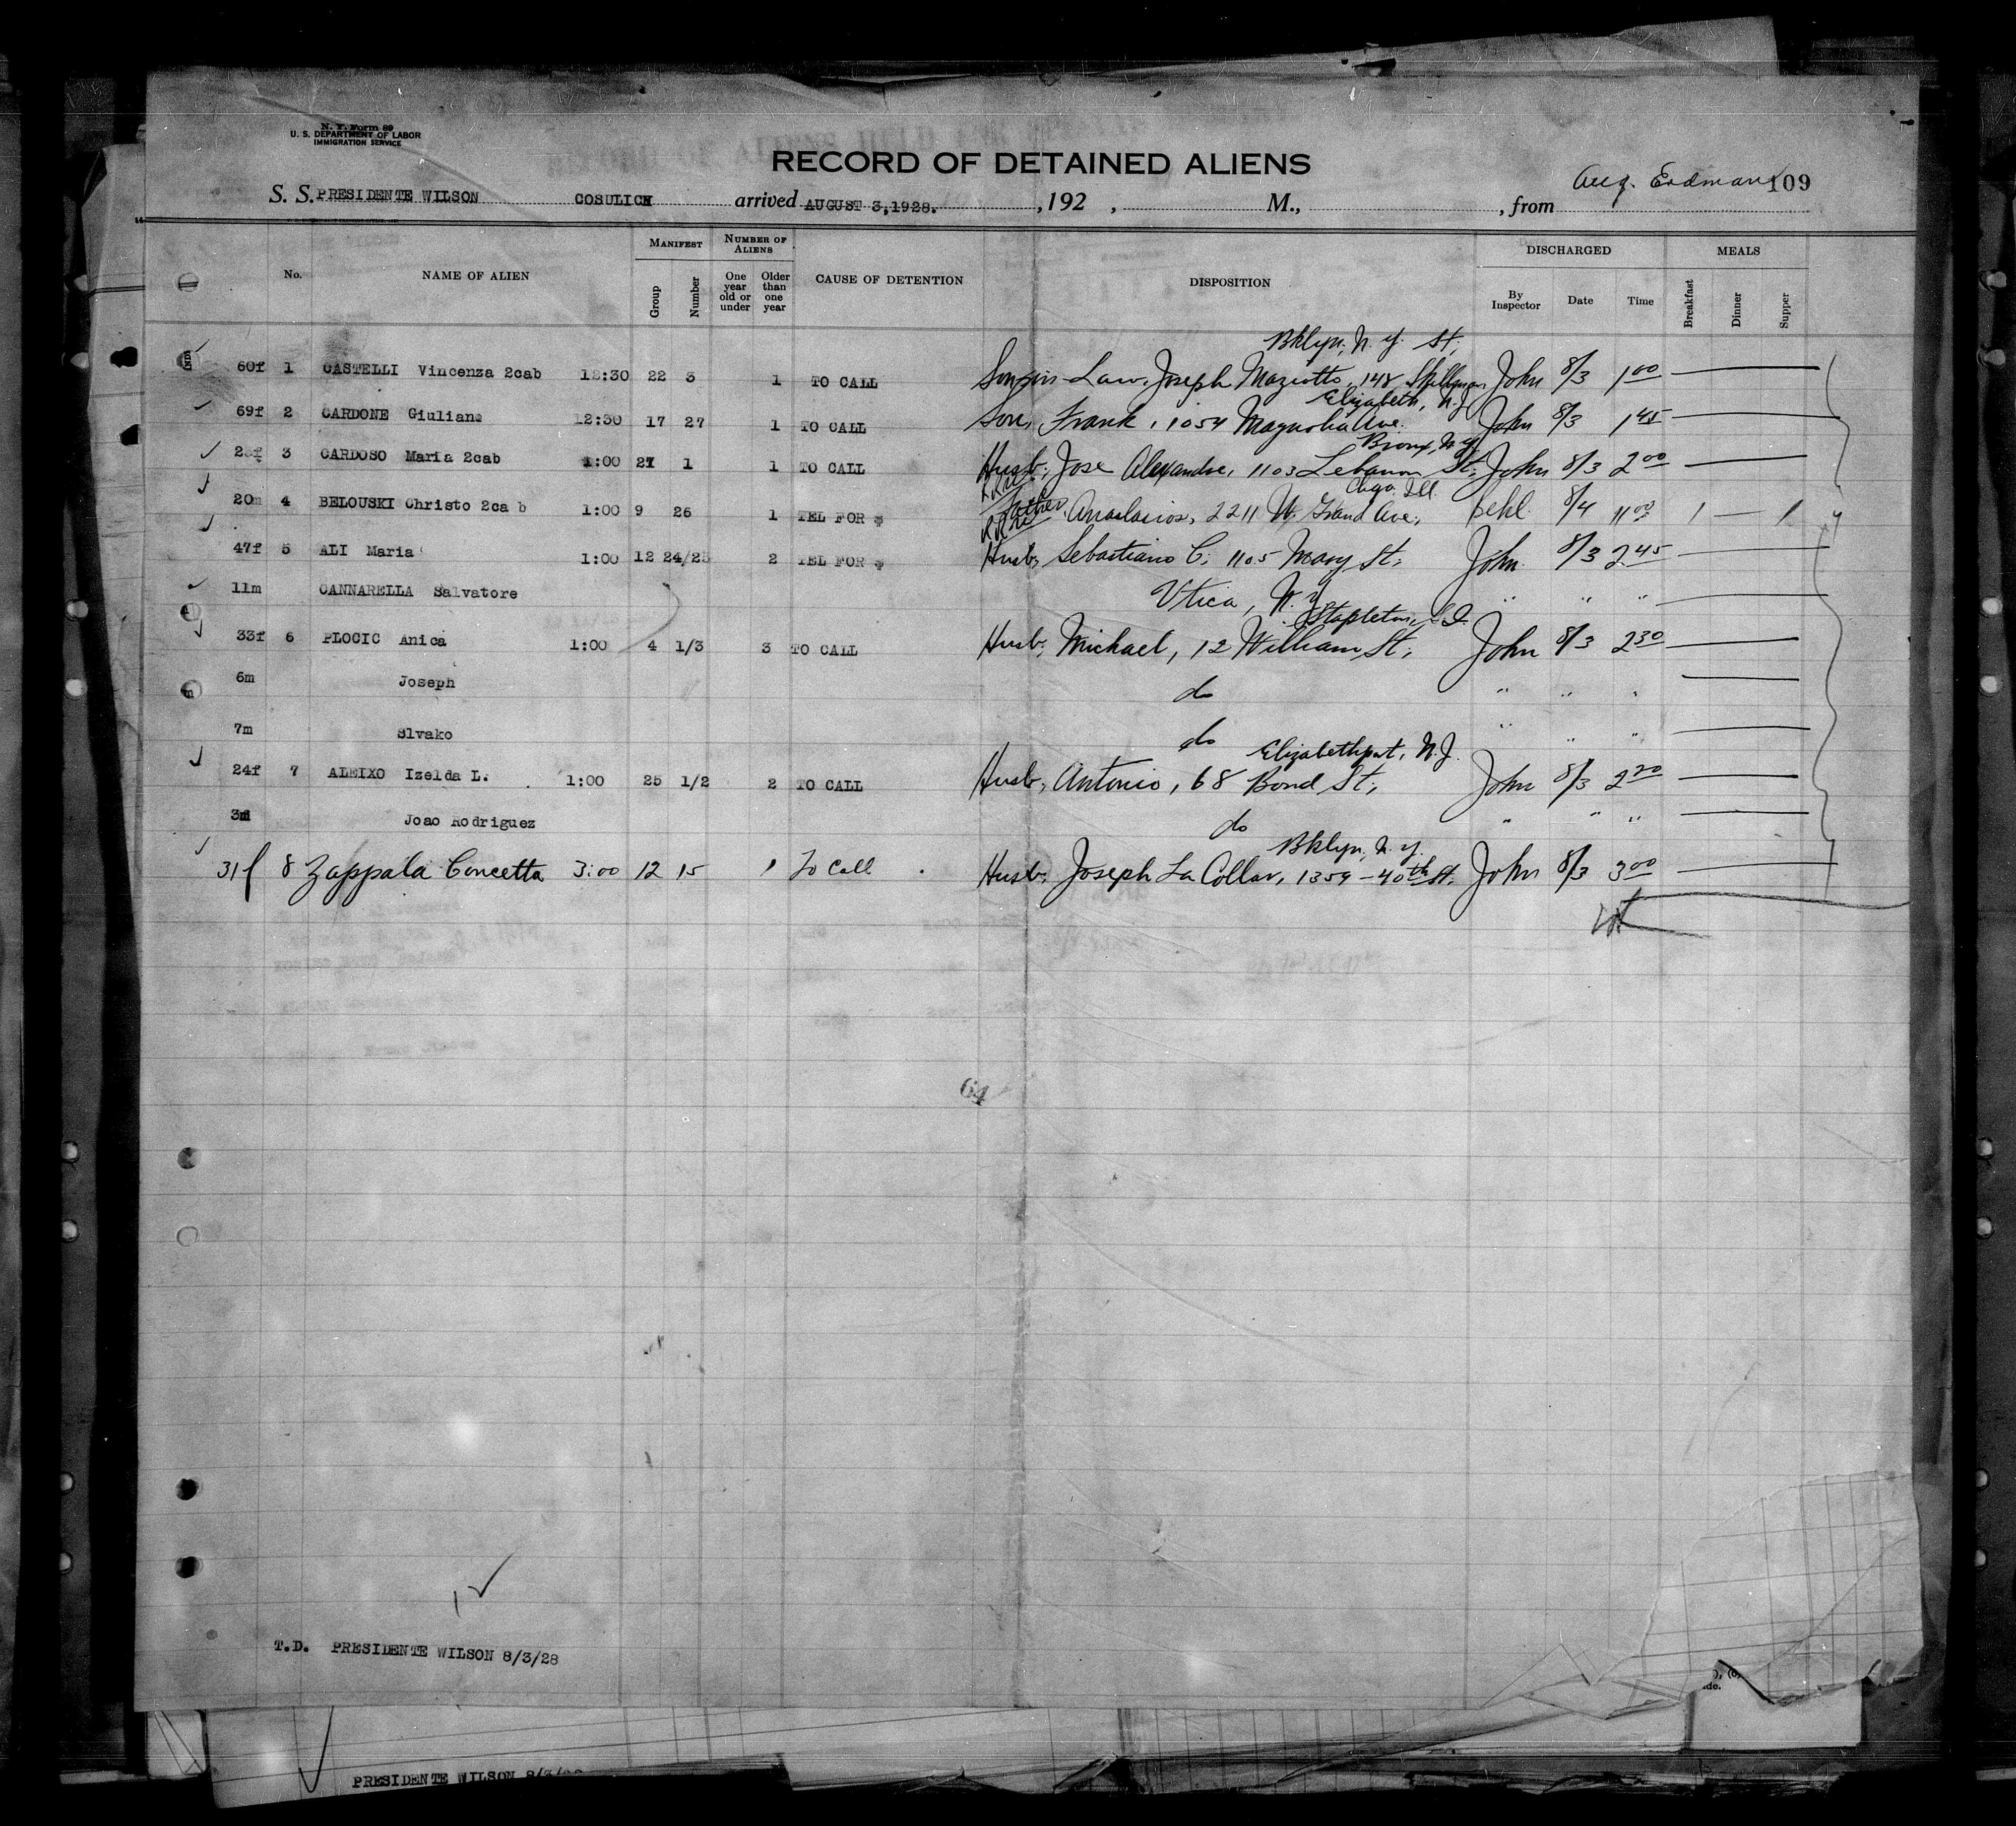 N. Y. Form 89
U. S. DEPARTMENT OF LABOR
IMMIGRATION SERVICE
RECORD OF DETAINED ALIENS
Aug. Erdman 109
S. S. PRESIDENTE WILSON COSULICH arrived AUGUST 3,1928. , 192 , M., , from
No. NAME OF ALIEN MANIFEST Group Number NUMBER OF ALIENS One year old or under Older than one year CAUSE OF DETENTION DISPOSITION DISCHARGED By Inspector Date Time MEALS Breakfast Dinner Supper
Bklyn, N. Y. St.
60f 1 CASTELLI Vincenza 2cab 12:30 22 3 1 TO CALL Son-in-Law, Joseph Maziotto, 148 Skillman John 8/3 1 00
Elizabeth, N.J.
69f 2 CARDONE Giuliana 12:30 17 27 1 TO CALL Son, Frank, 1054 Magnolia Ave. John 8/3 1 45
Bronx, N.Y.
3 CARDOSO Maria 2cab 1:00 27 1 1 TO CALL Husb, Jose Alexandre, 1103 Lebanon St, John 8/3 2 00
Chgo. Ill.
20m 4 BELOUSKI Christo 2ca b 1:00 9 26 1 TEL FOR $ Father, Anastasios, 2211 W. Grand Ave, 8/4 11 00 1 — 1
47f 5 ALI Maria 1:00 12 24/25 2 TEL FOR $ Husb, Sebastiano C. 1105 Mary St, John 8/3 2 45
11m CANNARELLA Salvatore Utica, N. Y. " " "
Stapleton, S.I.
33f 6 PLOCIC Anica 1:00 4 1/3 3 TO CALL Husb, Michael, 12 William St, John 8/3 2 30
6m Joseph do " " "
7m Slvako do " " "
Elizabethport, N.J.
24f 7 ALEIXO Izelda L. 1:00 25 1/2 2 TO CALL Husb, Antonio, 68 Bond St, John 8/3 2 20
3m Joao Rodriguez do " " "
Bklyn, N.Y.
31f 8 Zappala Concetta 3:00 12 15 1 To Call Husb, Joseph La Collar, 1359 - 40th St. John 8/3 3 00
64
T.D. PRESIDENTE WILSON 8/3/28
PRESIDENTE WILSON 8/3/28